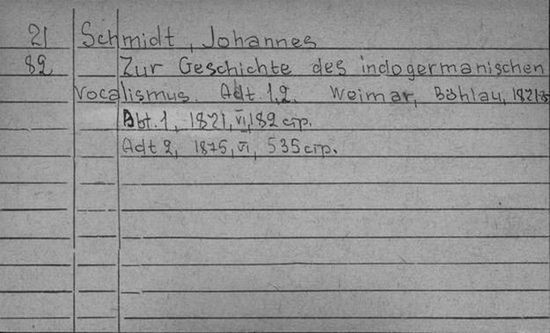 21 Schmidt, Johannes
82 Zur Geschichte des indogermanischen
Vocalismus. Adt. 1,2. Weimar, Böhlau, 1821
Abt. 1, 1821, VI, 182 стр.
Adt 2, 1875, VI, 535 стр.